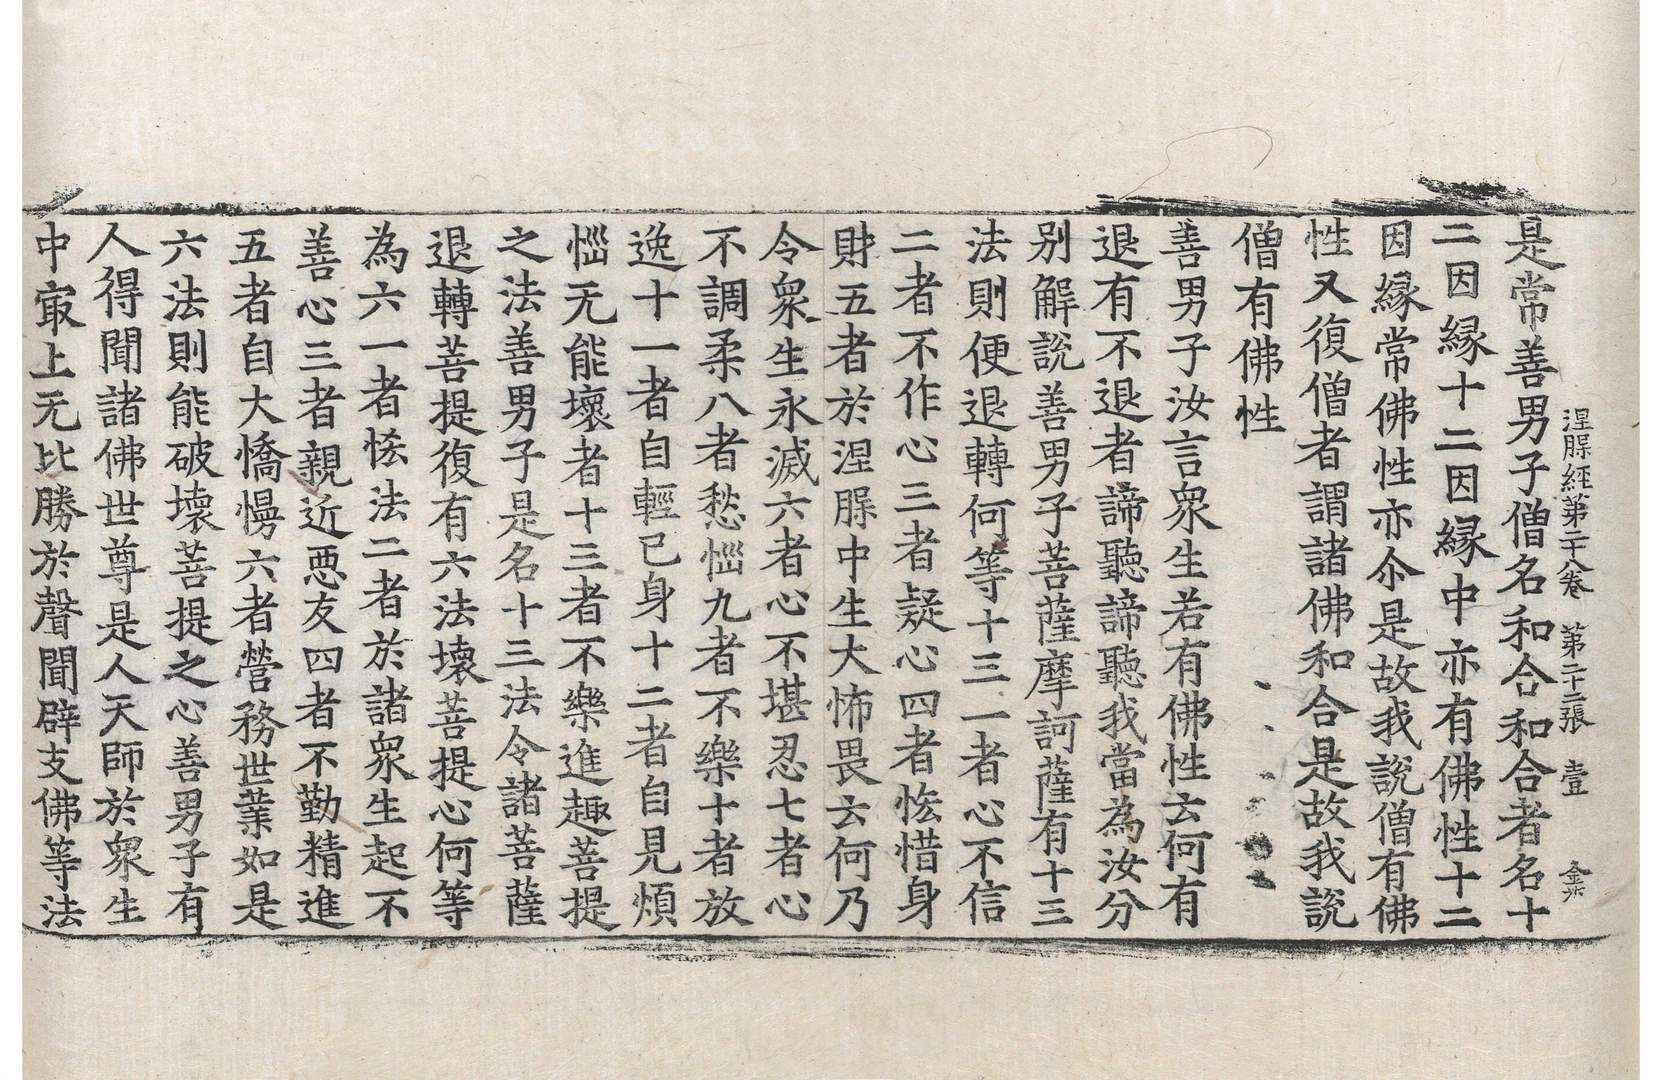 涅槃經第二十八卷 第二十二張 壹
是常善男子僧名和合和合者名十
二因縁十二因縁中亦有佛性十二
因縁常佛性亦尒是故我說僧有佛
性又復僧者謂諸佛和合是故我說
僧有佛性
善男子汝言衆生若有佛性云何有
退有不退者諦聽諦聽我當為汝分
别解說善男子菩薩摩訶薩有十三
法則便退轉何等十三一者心不信
二者不作心三者疑心四者恡惜身
財五者於涅槃中生大怖畏云何乃
令衆生永滅六者心不堪忍七者心
不調柔八者愁惱九者不樂十者放
逸十一者自輕已身十二者自見煩
惱无能壞者十三者不樂進趣菩提
之法善男子是名十三法令諸菩薩
退轉菩提復有六法壞菩提心何等
為六一者恡法二者於諸衆生起不
善心三者親近悪友四者不勤精進
五者自大憍慢六者營務世業如是
六法則能破壞菩提之心善男子有
人得聞諸佛世尊是人天師於衆生
中㝡上无比勝於聲聞辟支佛等法